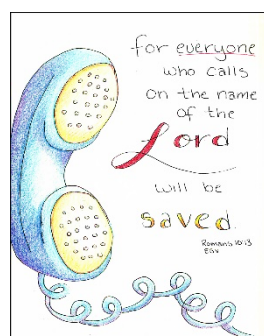 for everyone
who calls
on the name
of the
Lord
will be
saved
Romans 10:13
ESV